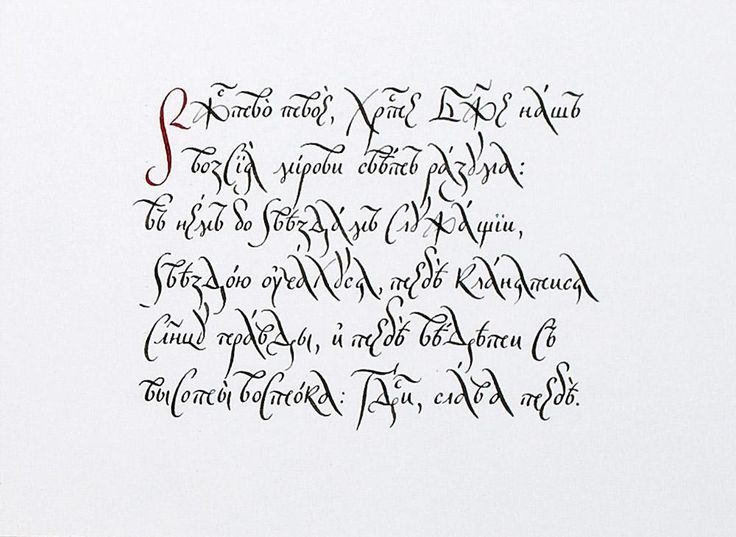 Рж҃ство̀ твоѐ, Хрⷭ҇те Бж҃е на́шъ
возсїѧ̀ мі́рови свѣ́тъ ра́зꙋма:
въ не́мъ бо ѕвѣзда́мъ слꙋжа́щїи,
ѕвѣздо́ю ᲂуча́хꙋсѧ, тебѣ̀ кла́нѧтисѧ
сл҃нцꙋ пра́вды, и҆ тебѣ̀ вѣ́дѣти съ
высоты̀ восто́ка: Гдⷭ҇и, сла́ва тебѣ̀.